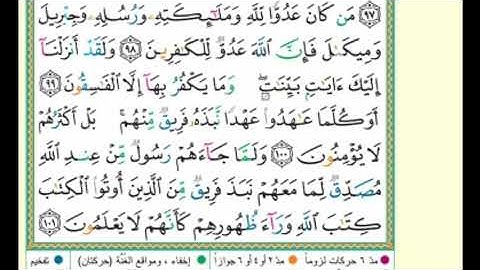 ﴿٩٧﴾ مَن كَانَ عَدُوًّا لِّلَّهِ وَمَلَـٰٓئِكَتِهِۦ وَرُسُلِهِۦ وَجِبْرِيلَ
وَمِيكَىٰلَ فَإِنَّ ٱللَّهَ عَدُوٌّ لِّلْكَـٰفِرِينَ ﴿٩٨﴾ وَلَقَدْ أَنزَلْنَآ
إِلَيْكَ ءَايَـٰتٍۭ بَيِّنَـٰتٍۖ وَمَا يَكْفُرُ بِهَآ إِلَّا ٱلْفَـٰسِقُونَ ﴿٩٩﴾
أَوَكُلَّمَا عَـٰهَدُوا۟ عَهْدًا نَّبَذَهُۥ فَرِيقٌ مِّنْهُمۚ بَلْ أَكْثَرُهُمْ
لَا يُؤْمِنُونَ ﴿١٠٠﴾ وَلَمَّا جَآءَهُمْ رَسُولٌ مِّنْ عِندِ ٱللَّهِ
مُصَدِّقٌ لِّمَا مَعَهُمْ نَبَذَ فَرِيقٌ مِّنَ ٱلَّذِينَ أُوتُوا۟ ٱلْكِتَـٰبَ
كِتَـٰبَ ٱللَّهِ وَرَآءَ ظُهُورِهِمْ كَأَنَّهُمْ لَا يَعْلَمُونَ ﴿١٠١﴾
مدّ ٦ حركات لزوماً مدّ ٢ أو ٤ أو ٦ جوازاً إخفاء، ومواقع الغُنَّة (حركتان) تفخيم